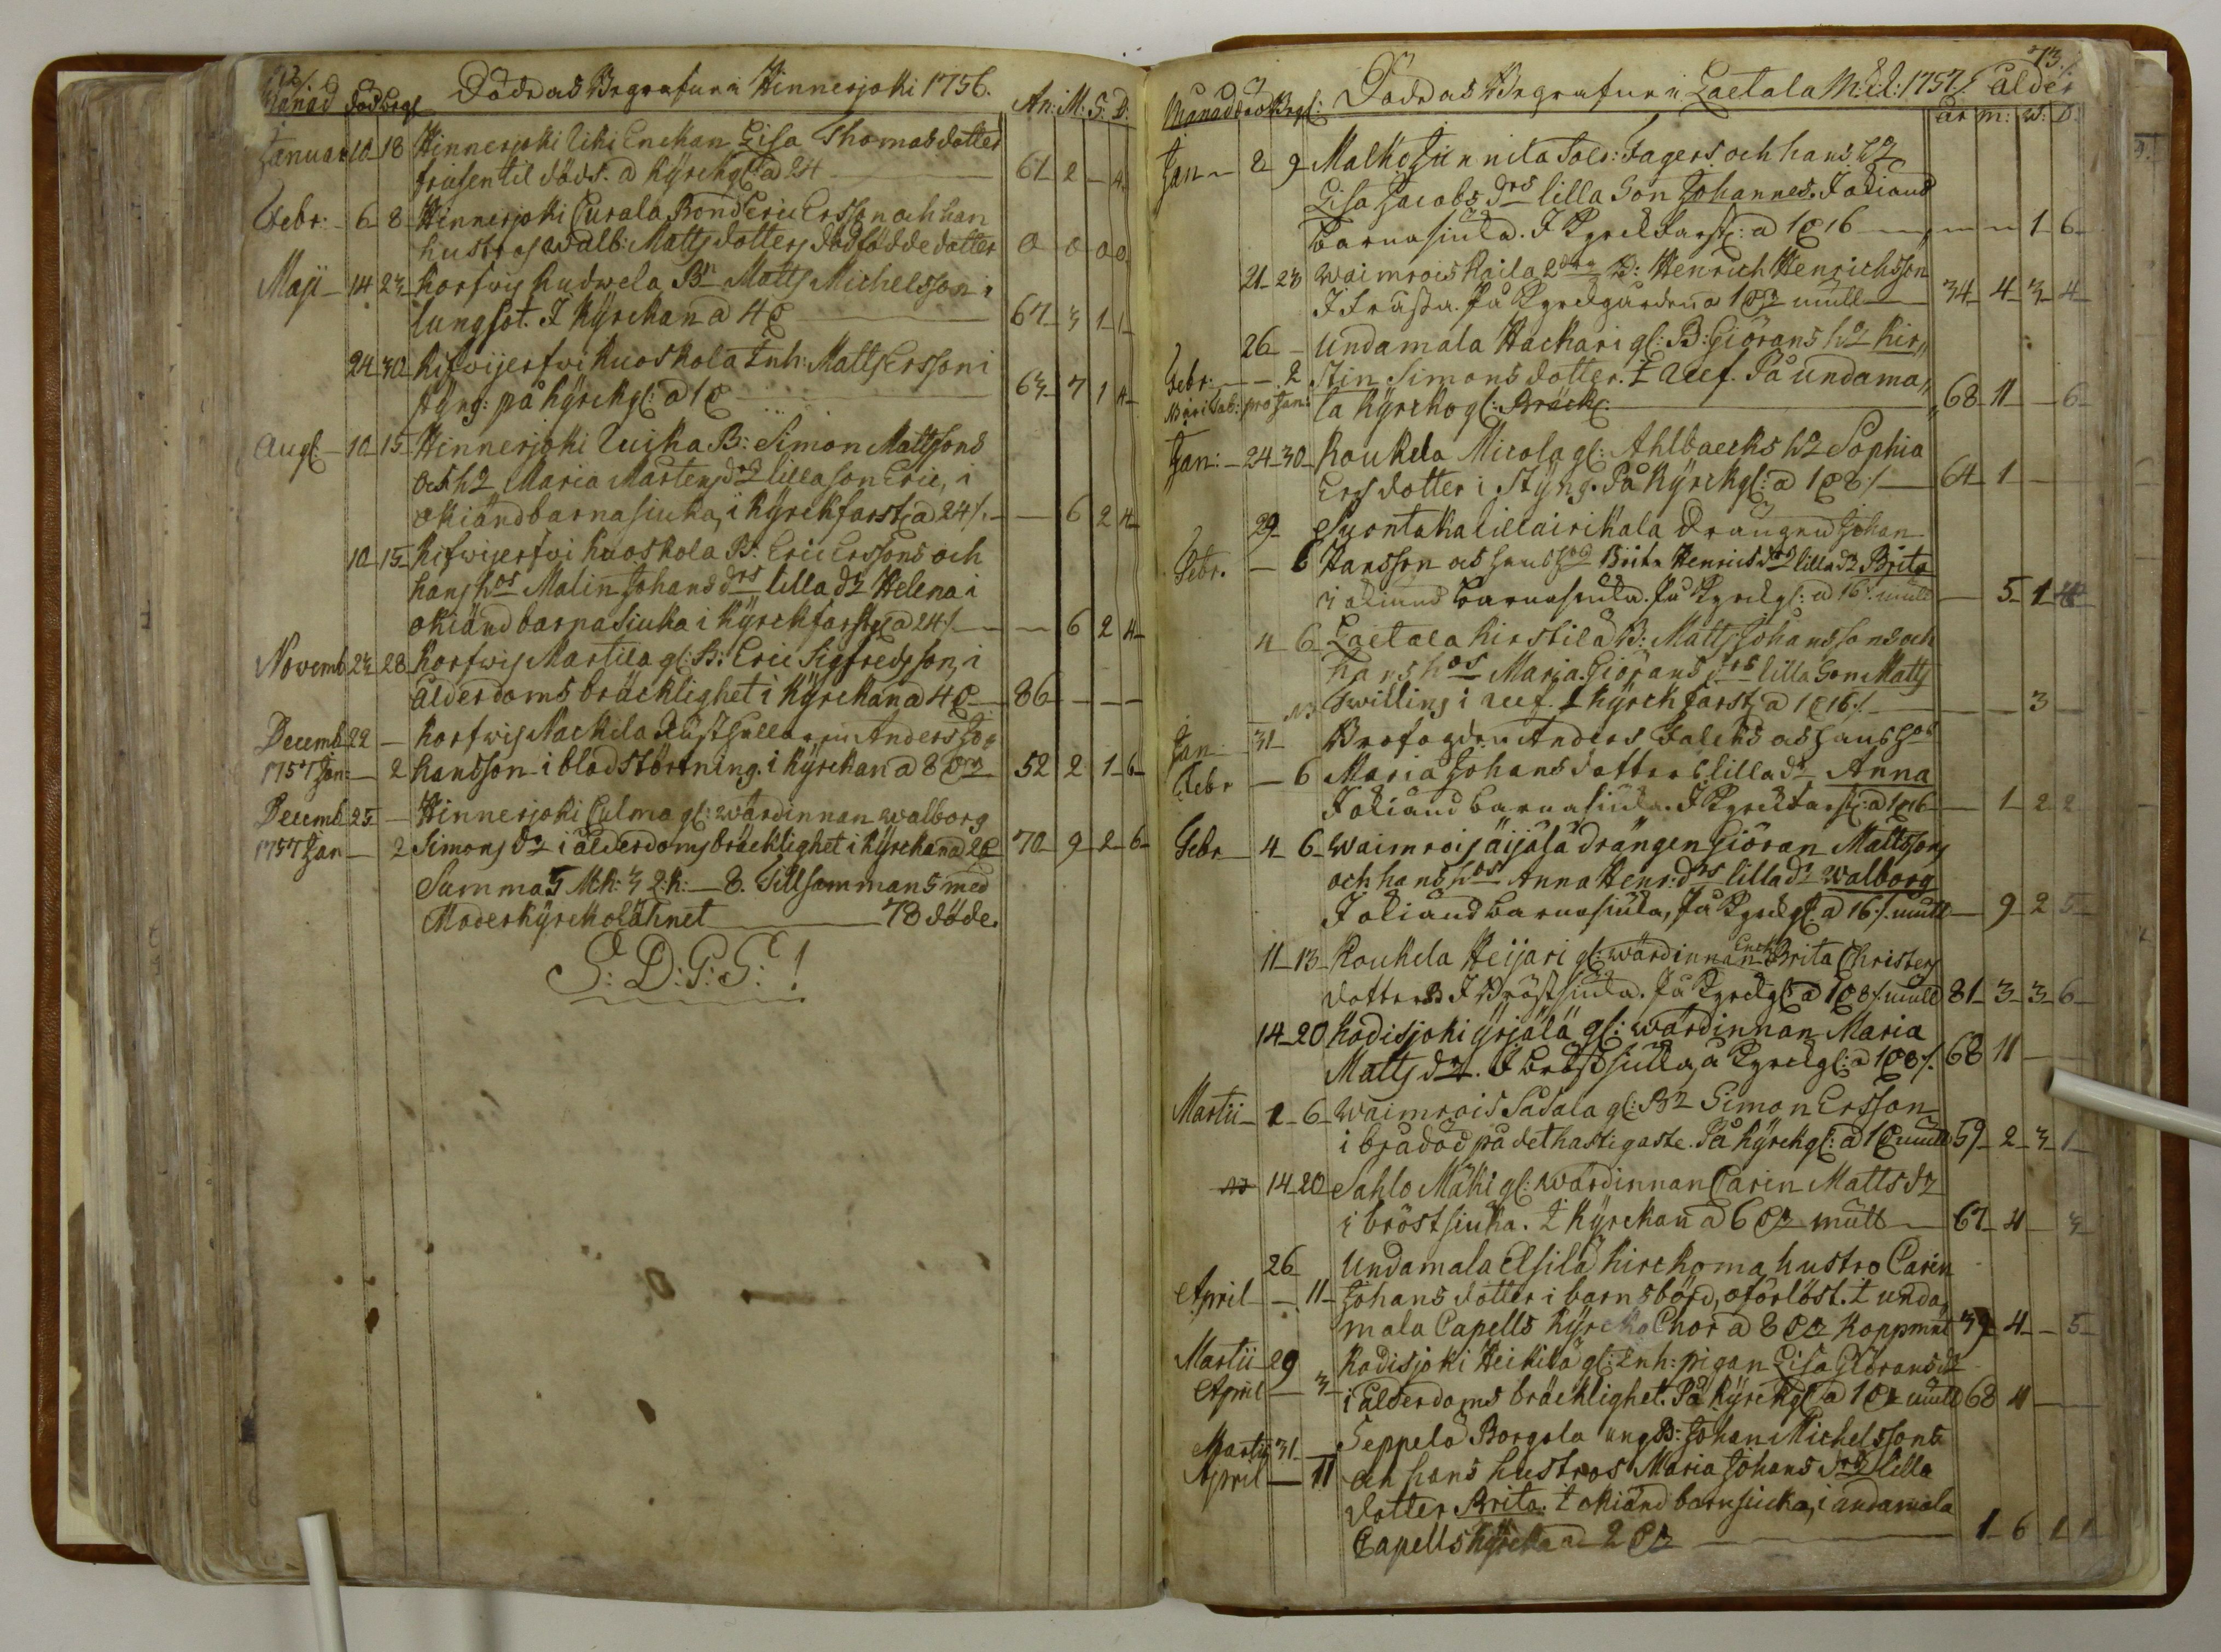 Månad Död Begr Döde och Begrafne i Hinnerjoki 1756. An: M: S: D:
Januar 10 18 Hinnerjoki Uki Enckan Lisa Thomasdotter
frusen til döds. a kyrckg: a 24 61 2 - 4
Febr: 6 8 Hinnerjoki Curala Bond Eric Ersson och han
hustros Walb: Matts dotters dödfödde dotter 0 0 0 0
Maji 14 23 Korfwis Ludwela Bn Matts Michelsson i
lungsot. I Kyrckan a 4 67 3 1 1
24 30 Kifwijerfwi Kuoskola Inh: Matts Ersson i
styng: på kyrckg: a 1 63 7 1 4
Aug 10 15 Hinnerjoki Uusika B: Simon Mattssons
och h Maria Mårtens drs lilla son Eric, i
okiänd barnasiuka, i Kyrckfarst: a 24 - 6 2 4
10 15 Kifwijerfwi Kuoskola B: Eric Erssons och
hans hos Malin Johans drs lilla dr Helena i
okiänd barnasiuka i Kyrckfarst: a 24 - 6 2 4
Novemb 23 28 Korfwis Martila gl: B: Eric Sigfredsson, i
ålderdoms bräcklighet i Kyrckan a 4 86 - - -
Decemb 22 - Korfwis Nackila Anders Jo,,
1757 Jan: - 2 hansson i blodstörtning. i kyrckan a 8 52 2 1 6
Decemb 25 - Hinnerjoki Culma gl: wärdinnan Walborg
1757 Jan - 2 Simons dr i ålderdoms bräcklighet i kyrckan a 70 9 2 6
Summa 5 Mk: 3 Qk: - 8. Tillsammans med
Moderkyrckolähnet 78 döde.
S: D: G: G: !
73.
Månad död Begr: Döde och Begrafne i Laetala 1757. ålder
år m: w: D:
Jan 2 9 Malko Junnila Sold: Fagers och hans h
Lisa Jacobs drs lilla Son Johannes. I okiand
barnasiuka. I Kyrckfarst: a 16 - - 1 6
21 23 Waimrois Kaila B: Henrich Henrichsson
I Frässa. På Kyrckgården a 1 mull 34 4 3 4
26 - Undamala Hackari gl: B: Giörans h Kir,,
Febr: - 2 stin Simons dotter. I Reef. På Undama,,
la kyrckog: Bräckl: 68 11 - 6
Jan: 24 30 Koukela Micola gl: Ahlbaecks h Sophia
Ers dotter i Styng. På Kyrckg: a 64 1 -
29 Suontaka lillairikala Drängen Johan
Febr. - 6 Hansson och hans Brita Henrics drs lilla dr Brita
i okiand barnasiuka. På Kyrckg: a 16 mull - 5 1
4 6 Laetala Kirstilä B: Matts Johanssons och
hans hos Maria Giörans drs lilla Son Matts
Twilling i Reef. I kyrckfarst: a 16 - - 3 -
Jan 31 Anders Faleks och hans hos
Febr - 6 Maria Johans dotters lilla dr Anna
I okiand barnasiuka. I Kyrckfarst: a 16 - 1 2 2
Febr 4 6 Waimrois äijälä drängen Giöran Mattssons
och hans hos Anna Henr: drs lilla dr Walborg
I okiand barnasiuka, På Kyrckg: a 16 mull - 9 2 5
11 13 Koukela Heijari gl: wärdinnan Enck Brita Christers
dotter I Bröstsiuka. På Kyrckg: a mull 81 3 3 6
14 20 Kodisjoki Yrjälä gl: wärdinnan Maria
Matts dr. I bröstsiuka, å Kyrckg: a 68 11 -
Martii 2 6 Waimrois Sasala gl: B Simon Ersson
i brådöd på det hastigaste. På kyrckg: a 1 mull 59 2 3 1
14 20 Sahlo Mäki gl: wärdinnan Carin Matts dr
i bröstsiuka. I kyrckan a 6 mull 67 4 - 3
26 Undamala Elsilä hustro Carin
April - 11 Johans dotter i barnsbörd, oförlöst. I Unda,,
mala Capells kyrcko Chor a 8 Kopprmt 39 4 - 5
Martii 29 Kadisjoki Heikilä gl: Inh: pigan Lisa Giörans dr
April - 3 i Ålderdoms bräcklighet. På kyrckg: a mull 68 11 - -
Martii 31 Seppelä Borgola ung B: Johan Michelssons
April - 11 och hans hustros Maria Johans drs lilla
dotter Brita. I okiänd barnsiucka, i undamala
Capells kyrcka a 2 1 6 1 1